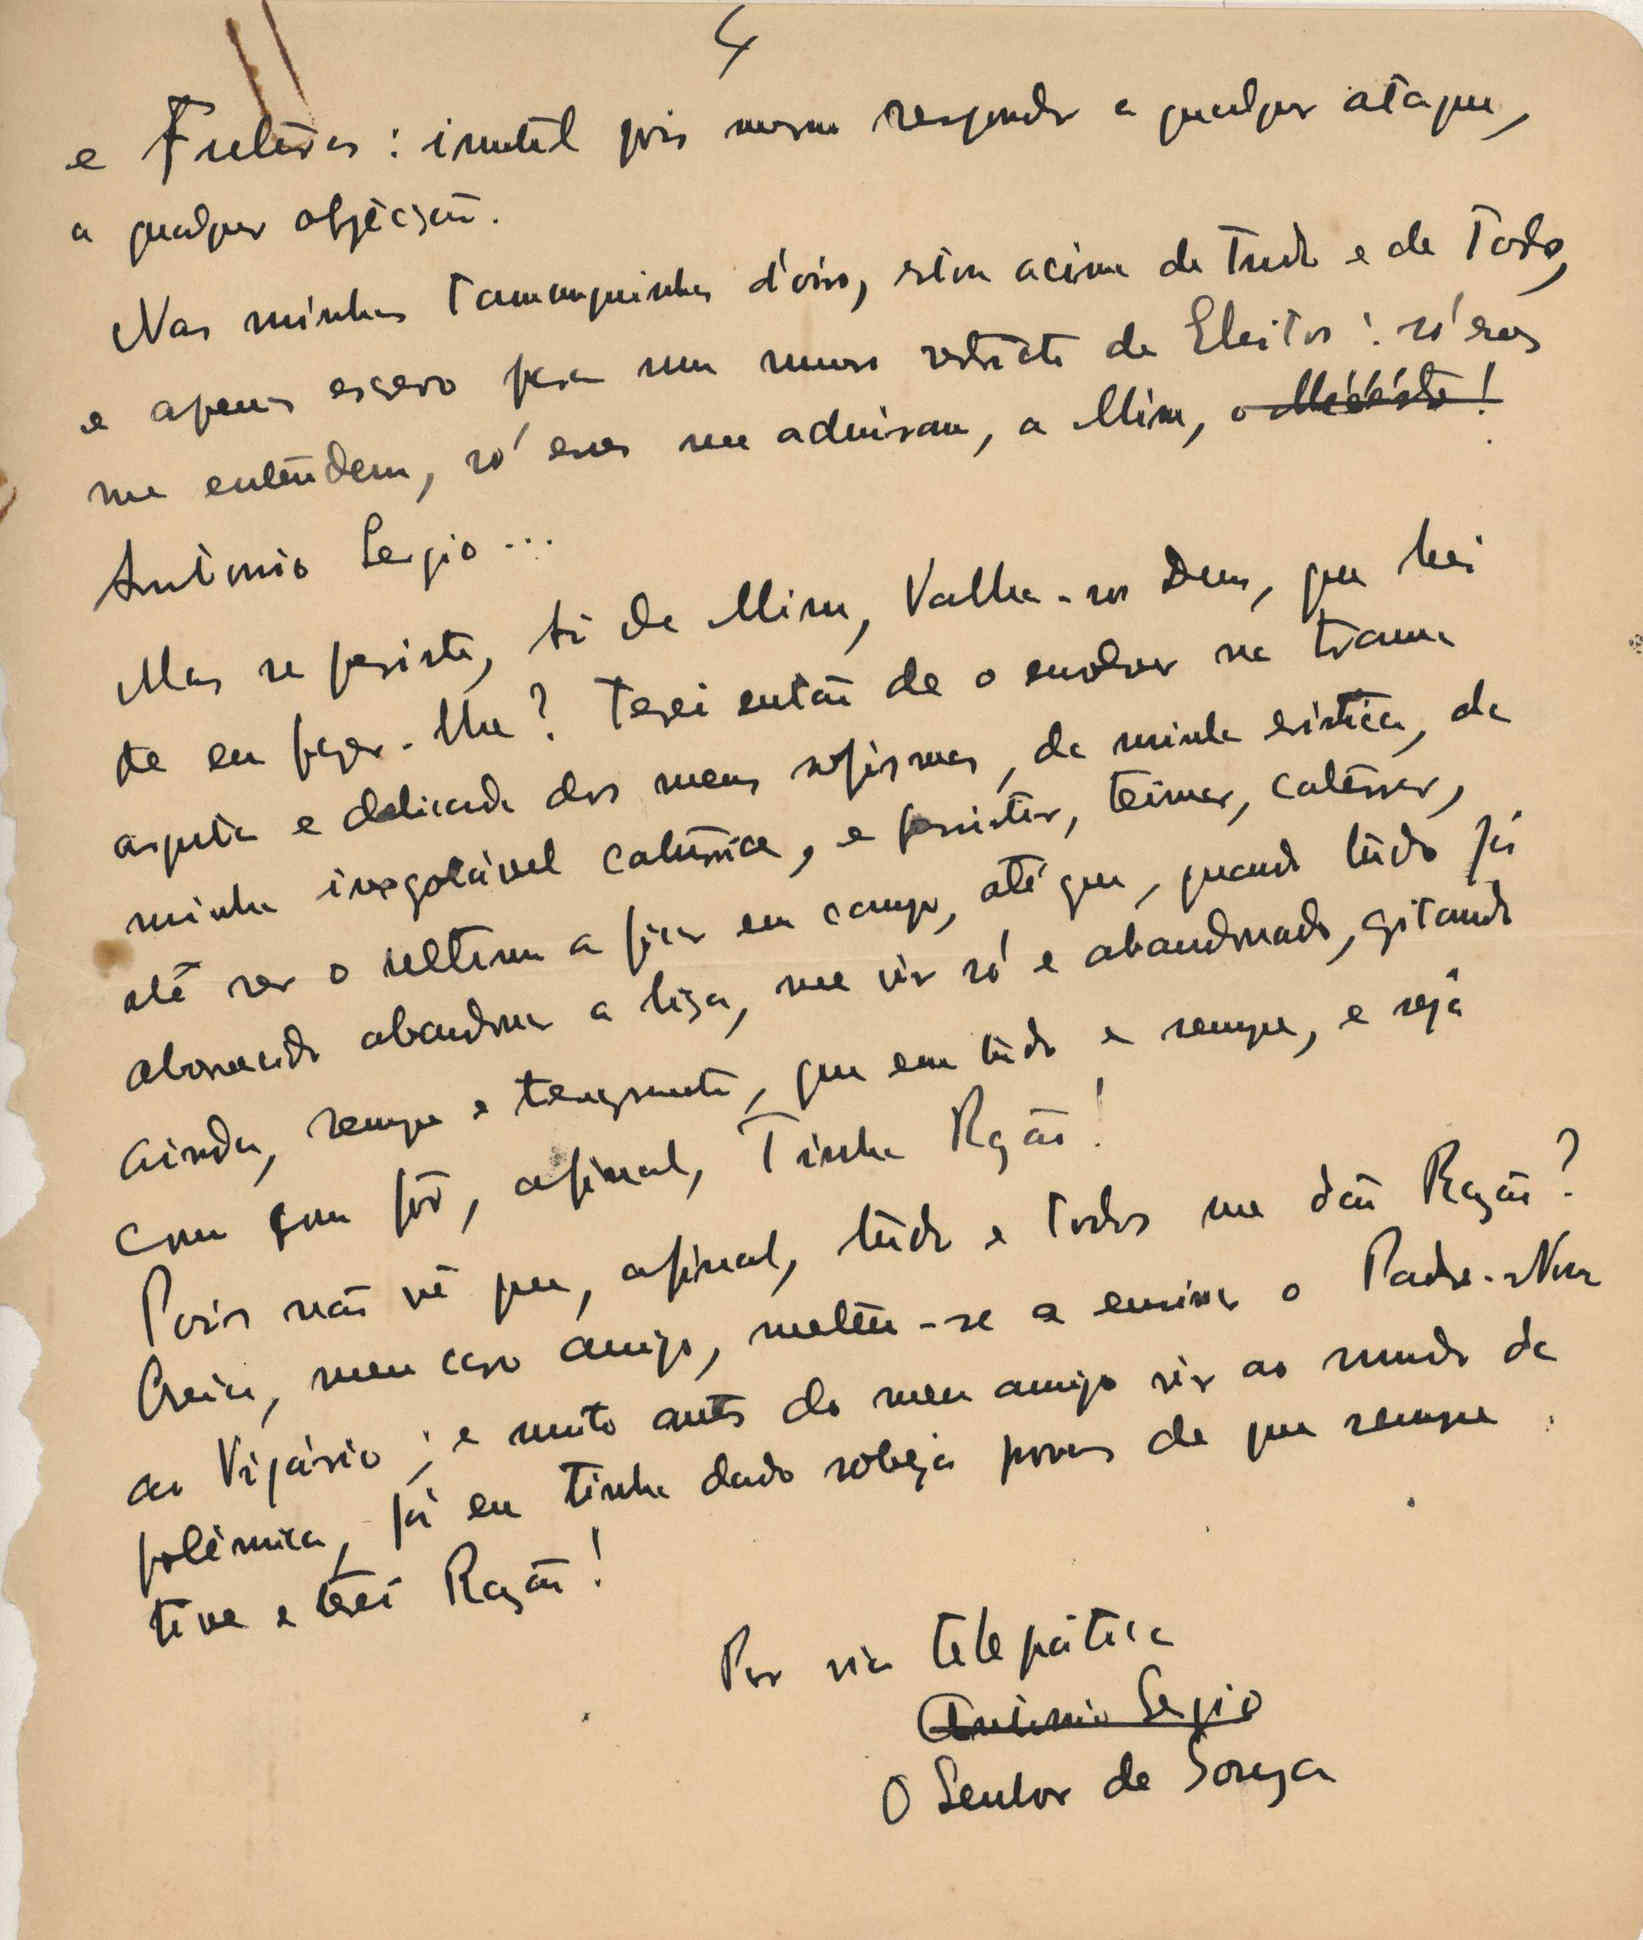 4
e Futeis: inutil pois mesmo responder a qualquer ataque,
a qualquer objècção.
Nas minhas tamanquinhas d'oiro, estou acima de tudo e de Todos,
e apenas escrevo para um numero restricto de Eleitos: só êsses
me entendem, só esses me admiram, a Mim, o
António Sergio...
Mas se persiste, ai de Mim, Valha-nos Deus, que hei
de eu fazer-lhe? Terei então de o envolver na trama
arguta e delicada dos meus sofismas, da minha eristica, da
minha inesgotável caturrice, e persistir, teimar, caturrar,
até ser o ultimo a ficar em campo, até que, quando tudo já
aborrecido abandonar a liça, me vir só e abandonado, gritando
ainda, sempre e tenazmente, que em tudo e sempre, e seja
com quem fôr, afinal, Tinha Razão!
Pois não vê que, afinal, tudo e todos me dão Razão?
Creia, meu caro amigo, meteu-se a ensinar o Padre-Nosso
ao Vigário; e muito antes do meu amigo vir ao mundo da
polémica, já eu tinha dado sobeja provas de que sempre
tive e terei Razão!
Por via telepática
António Sergio
O Senhor de